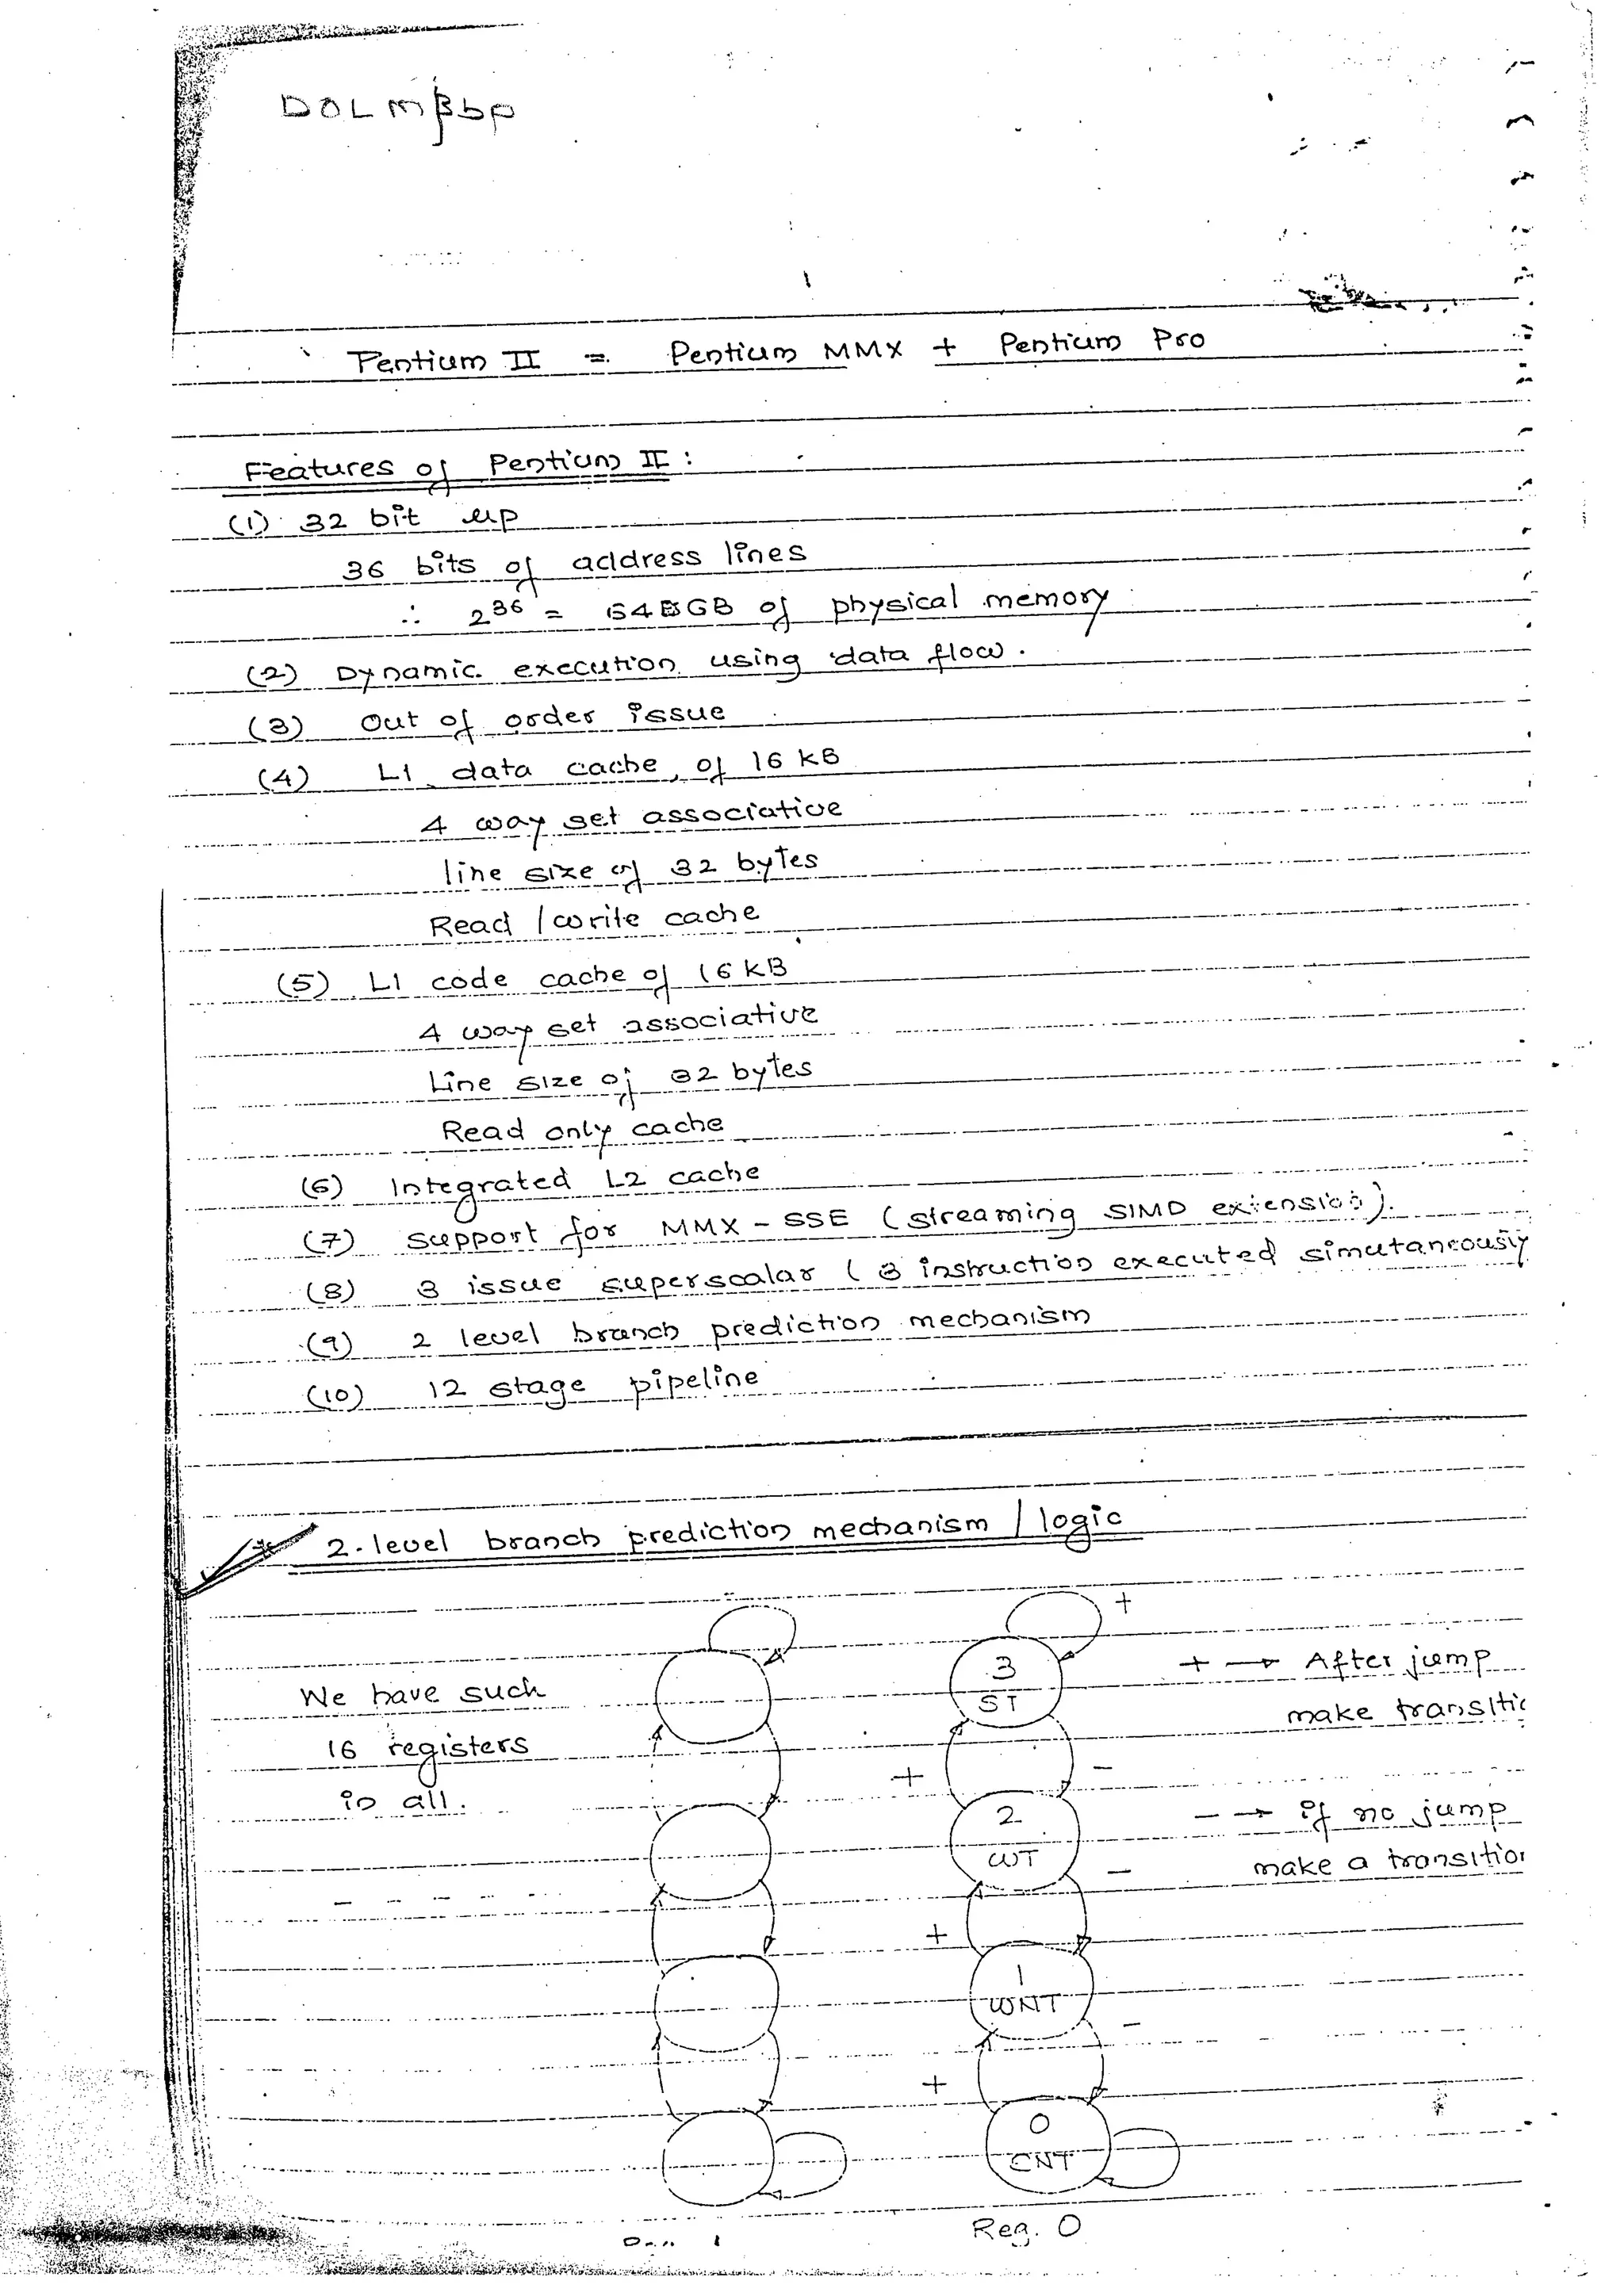 Pentium II = Pentium MMX + Pentium Pro
Features of Pentium II :
(1) 32 bit μp
36 bits of address lines
∴ 2^36 = 64 GB of physical memory
(2) Dynamic execution using data flow.
(3) Out of order issue
(4) L1 data cache of 16 kB
4 way set associative
line size of 32 bytes
Read / write cache
(5) L1 code cache of 16 kB
4 way set associative
Line size of 32 bytes
Read only cache
(6) Integrated L2 cache
(7) Support for MMX - SSE (streaming SIMD extension).
(8) 3 issue superscalar (3 instruction executed simutaneously
(9) 2 level branch prediction mechanism
(10) 12 stage pipeline
2-level branch prediction mechanism / logic
+
3
ST
+ → After jump
make transitio
We have such
16 registers
in all.
+ -
2
WT
- → if no jump
make a transition
-
+
1
WNT
-
+
0
Reg. 0